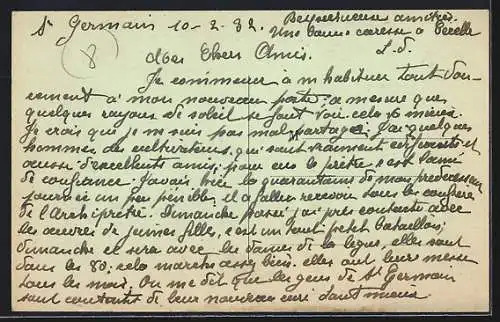 St Germain 10-2-32. Respectueuse amitiés.
Une bonne caresse à
(8) L. d.
Mes Chers Amis.
Je commence à m'habituer tout dou-
cement à mon nouveau poste; à mesure que
quelques rayons de soleil se font voir cela va mieux.
Je crois que je ne suis pas mal partagé. J'ai quelques
hommes des cultivateurs, qui sont vraiment et
aussi d'excellents amis; pour eux le prêtre, c'est l'ami
de confiance. J'avais hier la quarantaine de mon prédécesseur
journée un peu pénible, il a fallu recevoir tous les confrères
de l'Archiprêtré. Dimanche passé j'ai pris contact avec
les œuvres de jeunes filles, c'est un tout petit bataillon;
dimanche ce sera avec les dames de la ligue, elles sont
dans les 80; cela marche assez bien. elles ont leur messe
tous les mois. On me dit que les gens de St Germain
sont contents de leur nouveau curé